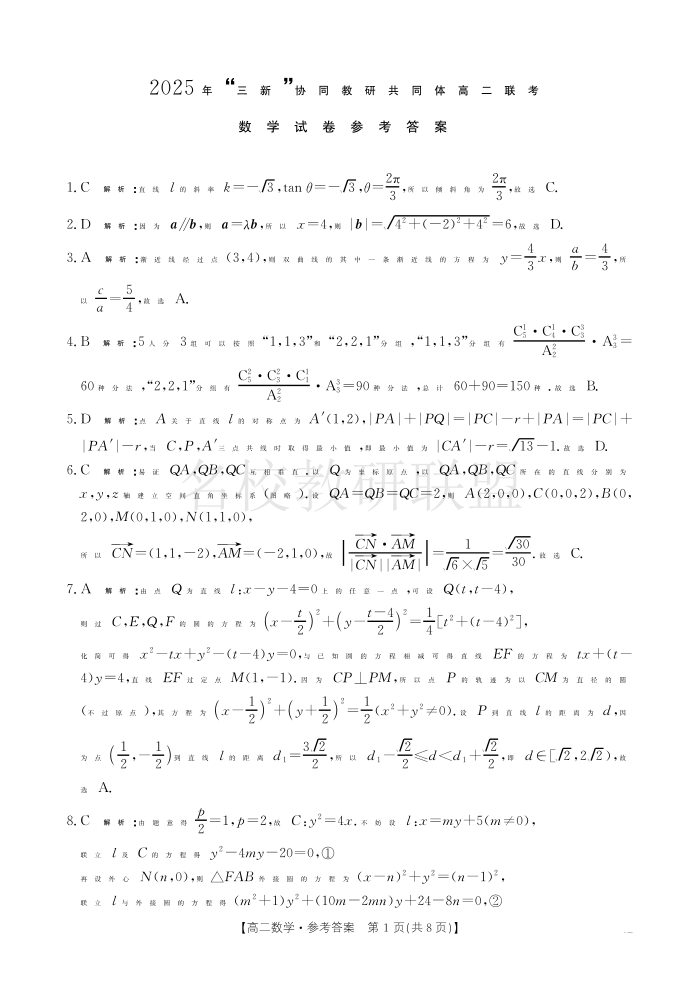 2025年“三新”协同教研共同体高二联考
数学试卷参考答案
1.C 解析:直线 l 的斜率 k=-√3,tan θ=-√3,θ=2π/3,所以倾斜角为 2π/3,故选 C.
2.D 解析:因为 a∥b,则 a=λb,所以 x=4,则 |b|=√(4²+(-2)²+4²)=6,故选 D.
3.A 解析:渐近线经过点(3,4),则双曲线的其中一条渐近线的方程为 y=4/3 x,则 a/b=4/3,所
以 c/a=5/4,故选 A.
4.B 解析:5人分3组可以按照“1,1,3”和“2,2,1”分组,“1,1,3”分组有 (C₅¹·C₄¹·C₃³)/A₂²·A₃³=
60种分法,“2,2,1”分组有 (C₅²·C₃²·C₁¹)/A₂²·A₃³=90种分法,总计 60+90=150种.故选 B.
5.D 解析:点 A 关于直线 l 的对称点为 A′(1,2),|PA|+|PQ|=|PC|-r+|PA|=|PC|+
|PA′|-r,当 C,P,A′三点共线时取得最小值,即最小值为 |CA′|-r=√13-1.故选 D.
6.C 解析:易证 QA,QB,QC 两两垂直.以 Q 为坐标原点,以 QA,QB,QC 所在的直线分别为
x,y,z 轴建立空间直角坐标系(图略).设 QA=QB=QC=2,则 A(2,0,0),C(0,0,2),B(0,
2,0),M(0,1,0),N(1,1,0),
所以 CN→=(1,1,-2),AM→=(-2,1,0),故 |CN→·AM→/(|CN→||AM→|)|=1/(√6×√5)=√30/30.故选 C.
7.A 解析:由点 Q 为直线 l:x-y-4=0 上的任意一点,可设 Q(t,t-4),
则过 C,E,Q,F 的圆的方程为 (x-t/2)²+(y-(t-4)/2)²=1/4[t²+(t-4)²],
化简可得 x²-tx+y²-(t-4)y=0,与已知圆的方程相减可得直线 EF 的方程为 tx+(t-
4)y=4,直线 EF 过定点 M(1,-1).因为 CP⊥PM,所以点 P 的轨迹为以 CM 为直径的圆
(不过原点),其方程为 (x-1/2)²+(y+1/2)²=1/2(x²+y²≠0).设 P 到直线 l 的距离为 d,因
为点 (1/2,-1/2) 到直线 l 的距离 d₁=3√2/2,所以 d₁-√2/2≤d<d₁+√2/2,即 d∈[√2,2√2),故
选 A.
8.C 解析:由题意得 p/2=1,p=2,故 C:y²=4x.不妨设 l:x=my+5(m≠0),
联立 l 及 C 的方程得 y²-4my-20=0,①
再设外心 N(n,0),则 △FAB 外接圆的方程为 (x-n)²+y²=(n-1)²,
联立 l 与外接圆的方程得 (m²+1)y²+(10m-2mn)y+24-8n=0,②
【高二数学·参考答案 第1页(共8页)】
名校教研联盟